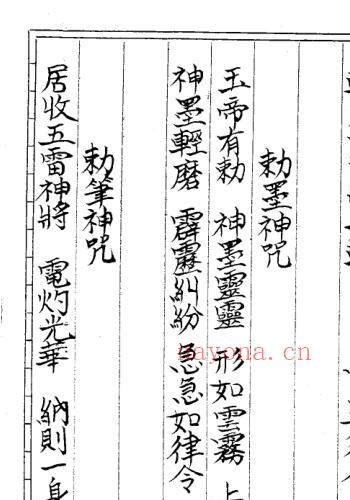 敕墨神咒
玉帝有敕 神墨靈靈 形如雲霧 上
神墨輕磨 霹靂糾紛 急急如律令
敕筆神咒
居收五雷神將 電灼光華 納則一身
nayona.cn